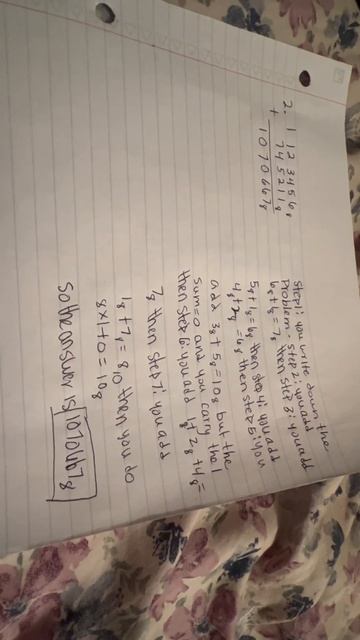 2. 1 12 3 4 5 6₈
+ 7 4 5 2 1 1₈
1 0 7 0 6 6 7₈
Step 1: you write down the
Problem. Step 2: you add
6₈+1₈=7₈ then step 3: you add
5₈+1₈=6₈ then step 4: you add
4₈+2₈=6₈ then step 5: you
add 3₈+5₈=10₈ but the
sum=0 and you carry the 1
then step 6: you add 1₈+2₈+4₈=
7₈ then step 7: you add
1₈+7₈=8₁₀ then you do
8x1+0=10₈
So the answer is 1070667₈